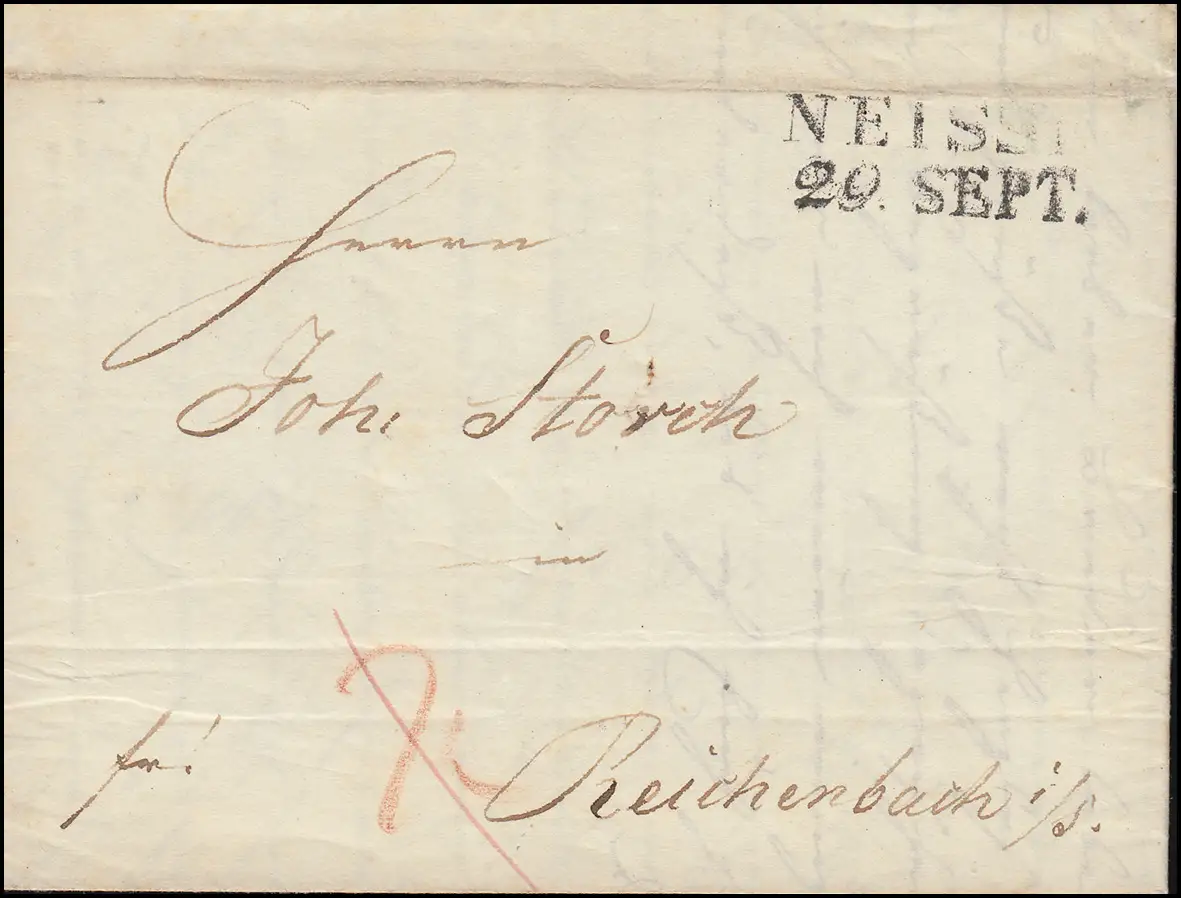 NEISSE
29. SEPT.
Herrn
Joh: Storch
in
fr!
Reichenbach i/S.